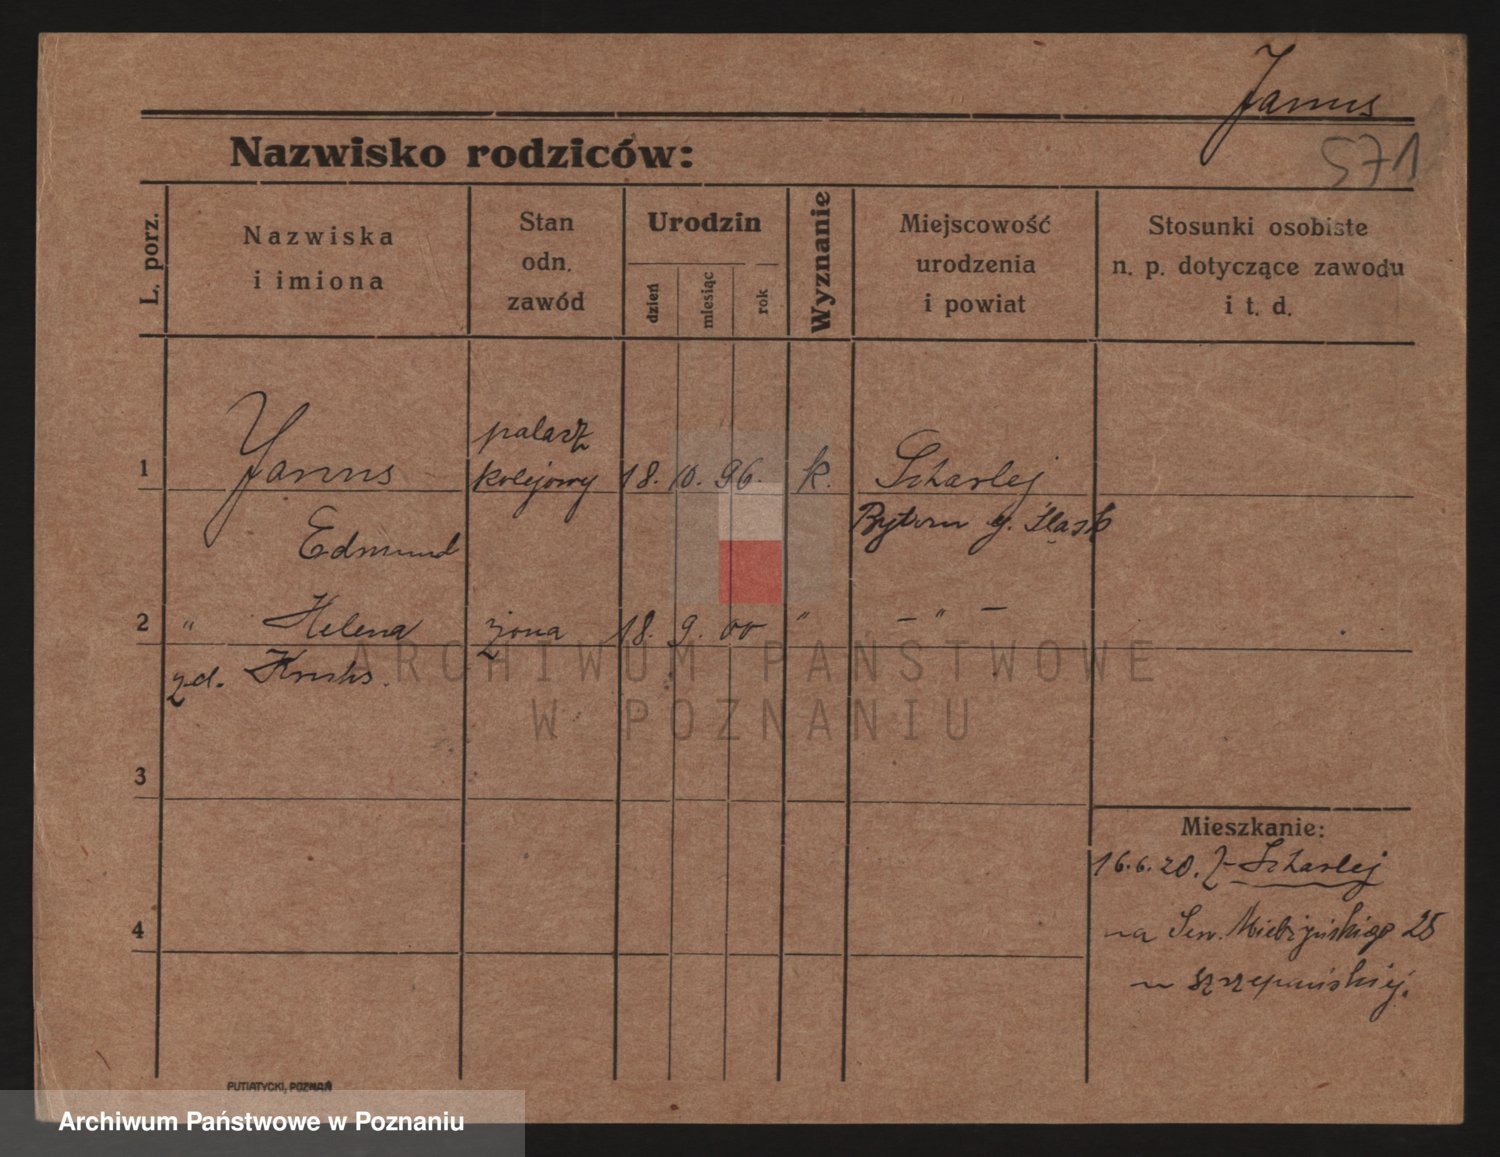 Janus
571
Nazwisko rodziców:
L. porz.
Nazwiska
i imiona
Stan
odn.
zawód
Urodzin
dzień
miesiąc
rok
Wyznanie
Miejscowość
urodzenia
i powiat
Stosunki osobiste
n. p. dotyczące zawodu
i t. d.
1
Janus
Edmund
palacz
kolejowy
18. 10. 96.
k.
Scharlej
Bytom g. Śląsk
2
" Helena
zd.
żona
18. 9. 00
"
— " —
3
4
Mieszkanie:
16.6.20. z Scharlej
na Sew. Mielżyńskiego 25
u Szczepańskiej.
ARCHIWUM PAŃSTWOWE
W POZNANIU
PUTIATYCKI, POZNAŃ
Archiwum Państwowe w Poznaniu